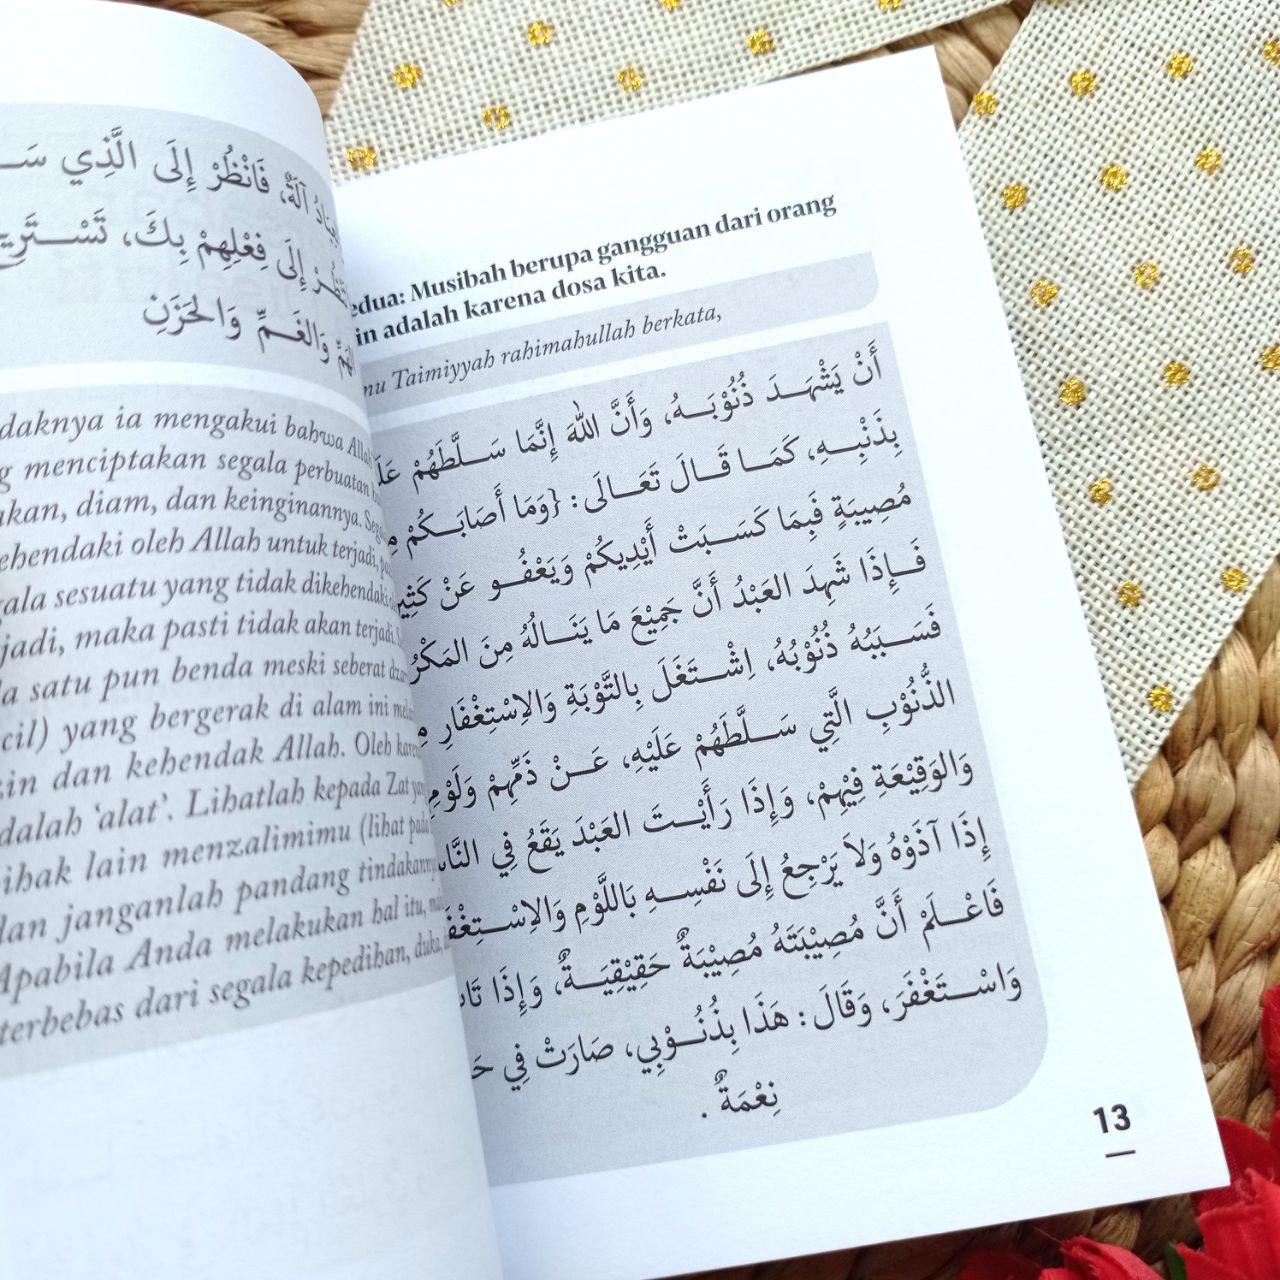 الَّذِي إِلَى فَانْظُرْ آلَةٌ،
إِلَى فِعْلِهِمْ بِكَ،
وَالغَمِّ وَالحَزَنِ
ia mengakui bahwa Allah
menciptakan segala perbuatan
diam, dan keinginannya.
oleh Allah untuk terjadi,
sesuatu yang tidak dikehendaki
maka pasti tidak akan terjadi.
satu pun benda meski seberat
yang bergerak di alam ini
dan kehendak Allah. Oleh
'alat'. Lihatlah kepada Zat
lain menzalimimu (lihat
janganlah pandang
Apabila Anda melakukan hal itu,
terbebas dari segala kepedihan, duka,
Musibah berupa gangguan dari orang
adalah karena dosa kita.
Taimiyyah rahimahullah berkata,
أَنْ يَشْهَدَ ذُنُوْبَهُ، وَأَنَّ اللهَ إِنَّمَا سَلَّطَهُمْ
بِذَنْبِهِ، كَمَا قَالَ تَعَالَى: {وَمَا أَصَابَكُمْ
مُصِيبَةٍ فَبِمَا كَسَبَتْ أَيْدِيكُمْ وَيَعْفُو عَنْ
فَإِذَا شَهِدَ العَبْدُ أَنَّ جَمِيْعَ مَا يَنَالُهُ مِنَ
فَسَبَبُهُ ذُنُوْبُهُ، اِشْتَغَلَ بِالتَّوْبَةِ وَالاِسْتِغْفَارِ
الذُّنُوْبِ الَّتِي سَلَّطَهُمْ عَلَيْهِ، عَنْ ذَمِّهِمْ
وَالوَقِيْعَةِ فِيْهِمْ، وَإِذَا رَأَيْتَ العَبْدَ يَقَعُ فِي
إِذَا آذَوْهُ وَلاَ يَرْجِعُ إِلَى نَفْسِهِ بَاللَّوْمِ
فَاعْلَمْ أَنَّ مُصِيْبَتَهُ مُصِيْبَةٌ حَقِيْقِيَةٌ، وَإِذَا
وَاسْتَغْفَرَ، وَقَالَ: هَذَا بِذُنُوْبِي، صَارَتْ فِي
نِعْمَةٌ .
13